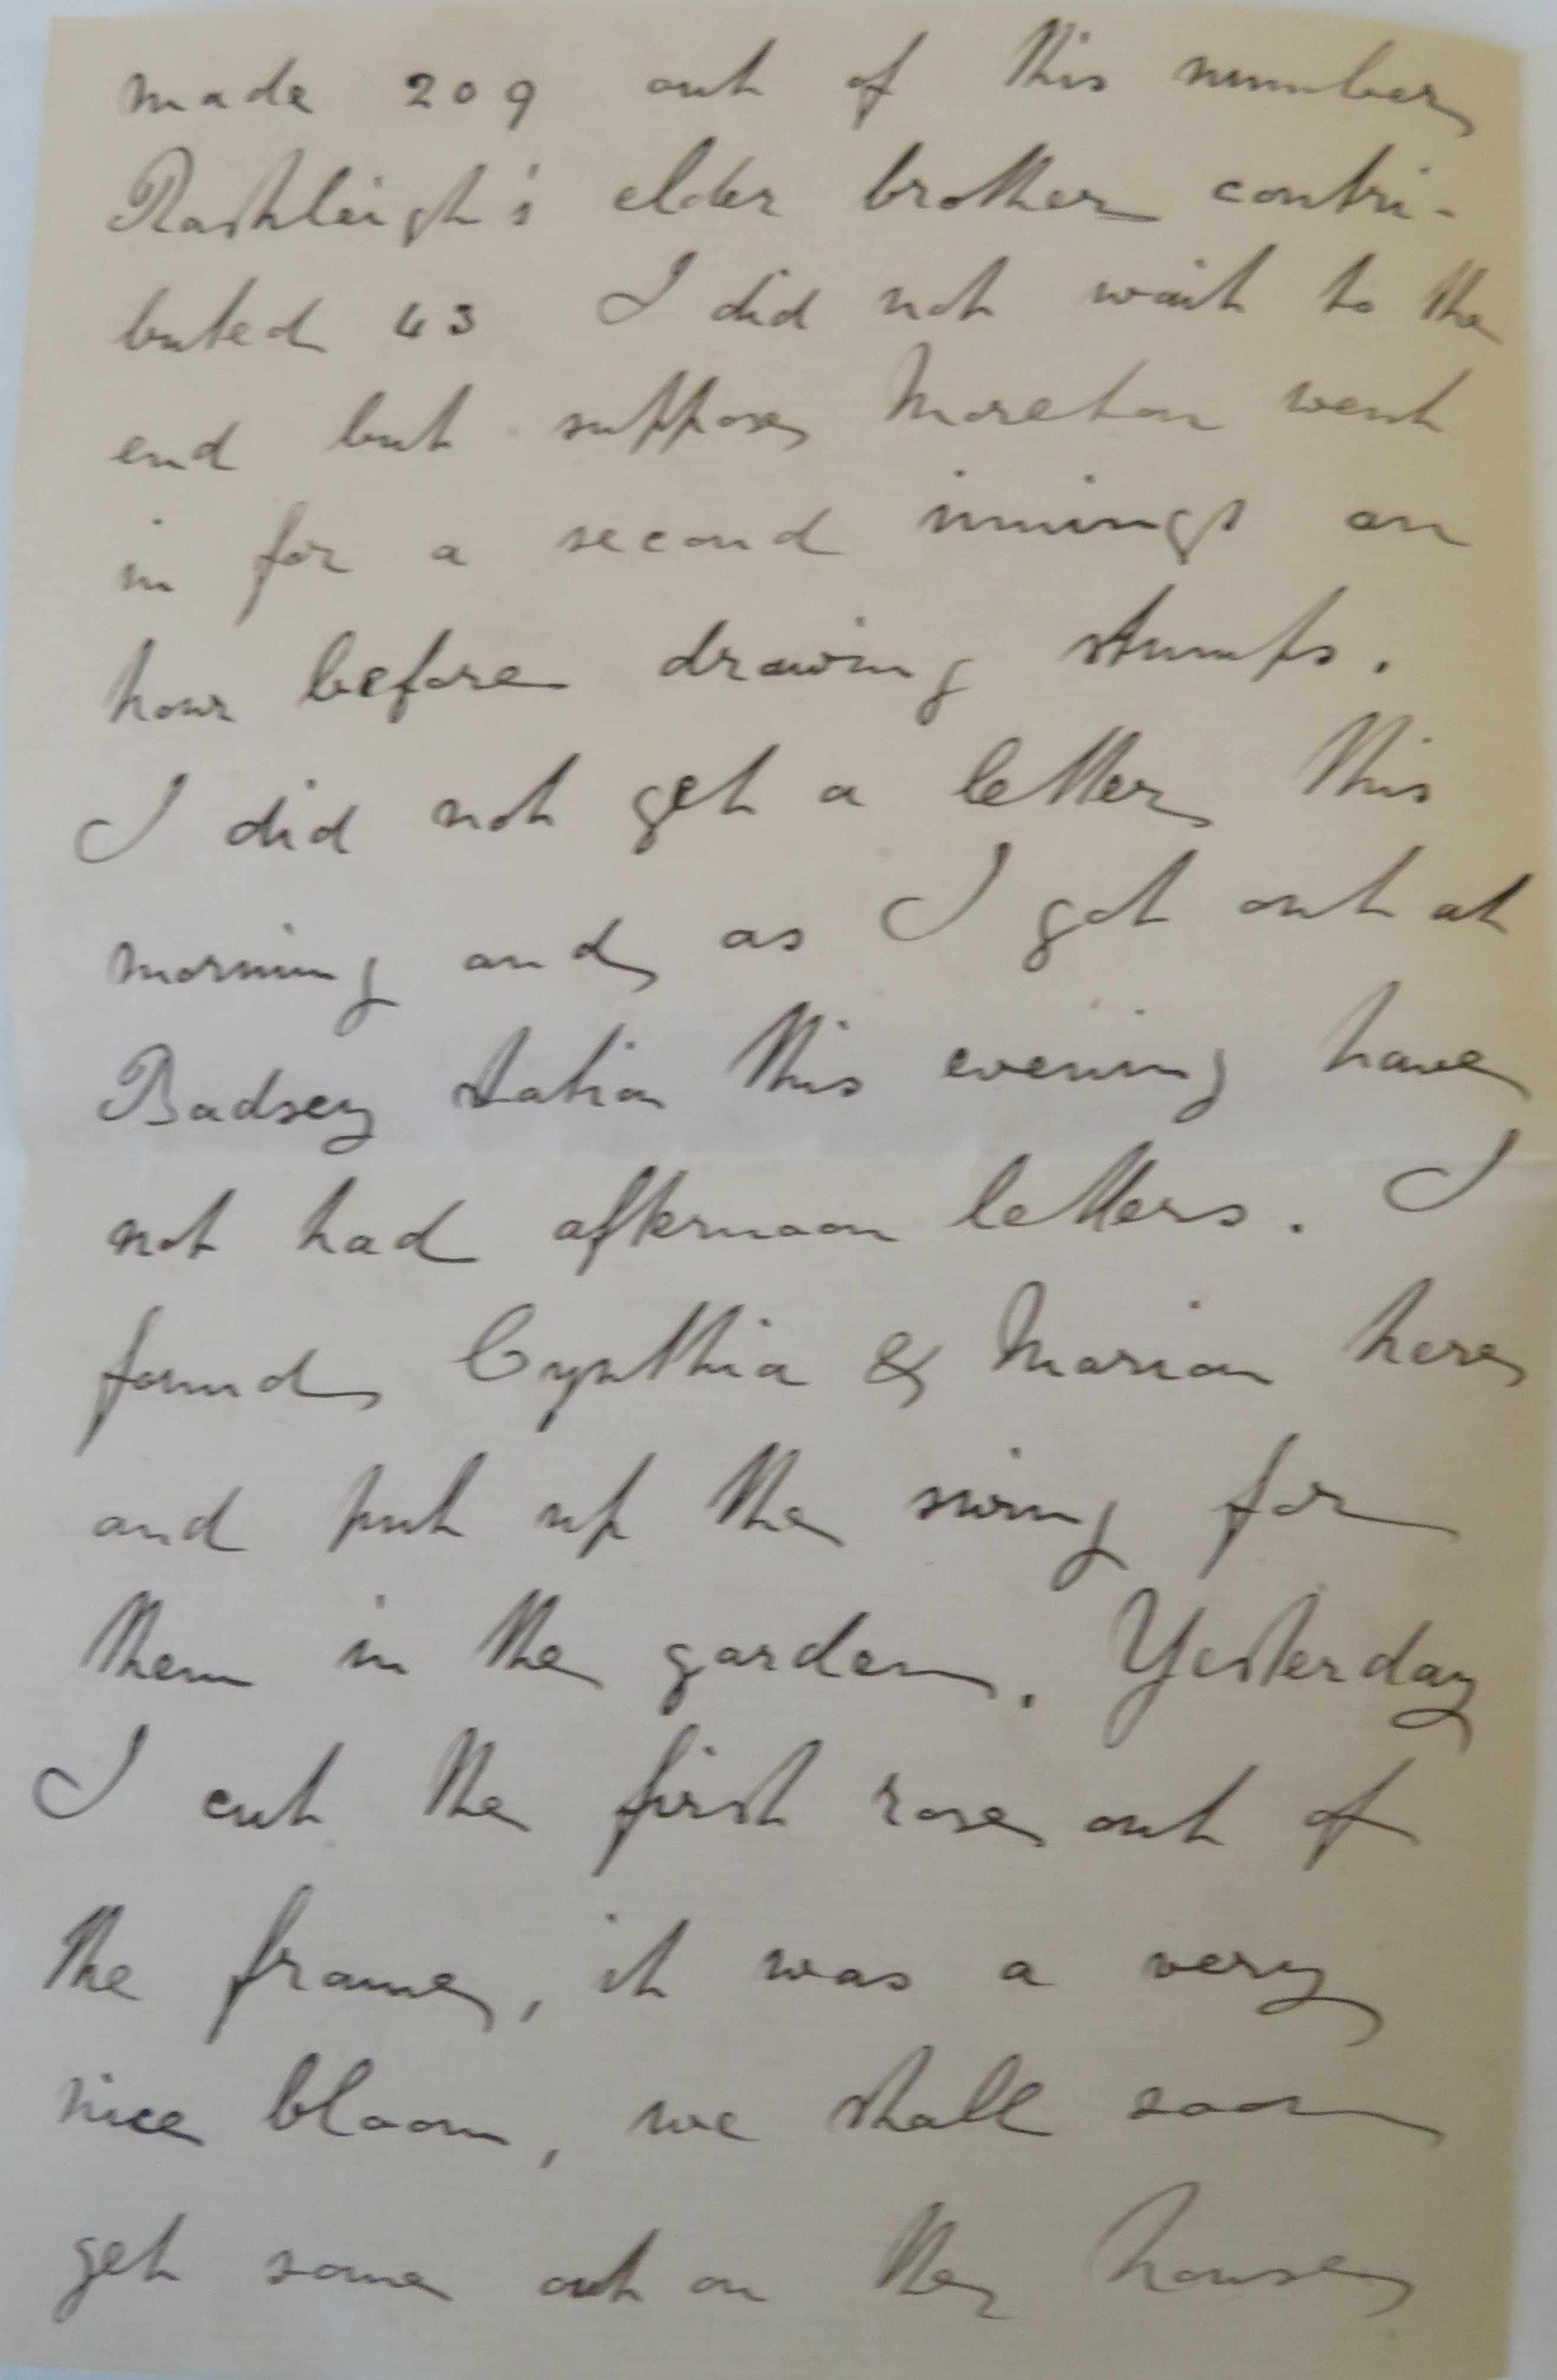 made 209 out of this number
Rashleigh's elder brother contri-
buted 43 I did not wait to the
end but suppose Moreton went
in for a second innings an
hour before drawing stumps.
I did not get a letter this
morning and as I got out at
Badsey station this evening have
not had afternoon letters. I
found Cynthia & Marion here
and put up the swing for
them in the garden. Yesterday
I cut the first rose out of
the frame, it was a very
nice bloom, we shall soon
get some out on the house